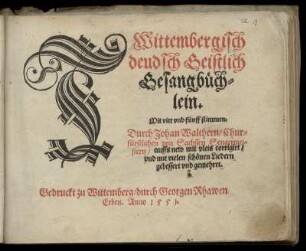 Wittembergisch
deudsch Geistlich
Gesangbüch-
lein.
Mit vier vnd fünff stimmen.
Durch Johan Walthern/ Chur-
fürstlichen von Sachssen Sengermei-
stern/ auffs new mit vleis corrigirt/
vnd mit vielen schönen Liedern
gebessert vnd gemehret.
Gedruckt zu Wittemberg/ durch Georgen Rhawen
Erben. Anno 1551.